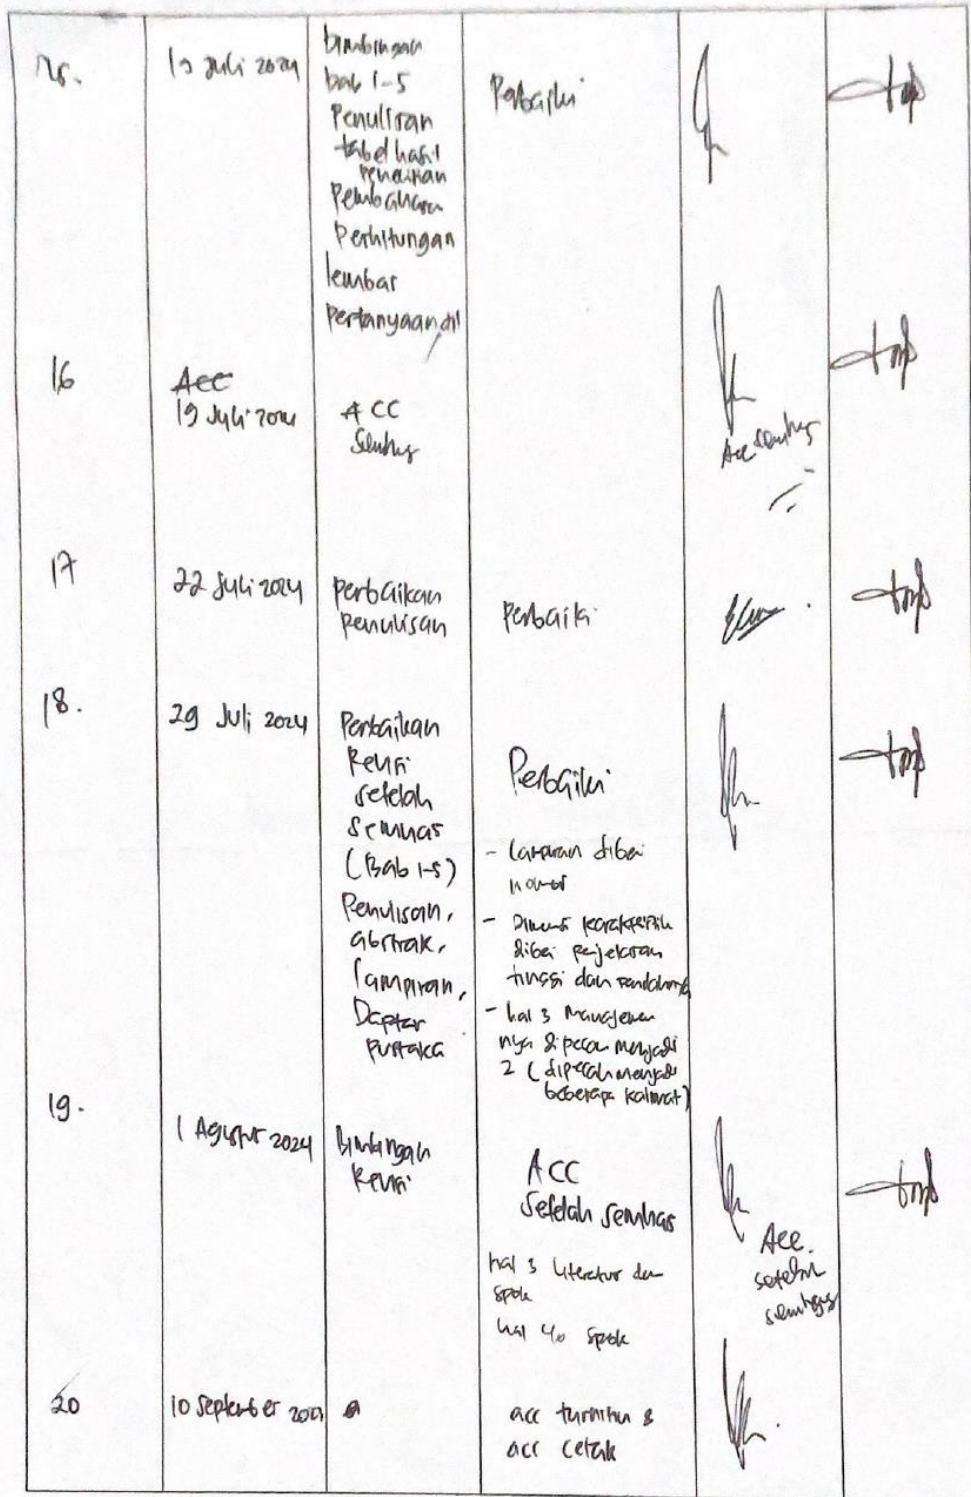 15.
19 Juli 2024
bimbingan
bab 1-5
Penulisan
tabel hasil
penelitian
Pembahasan
Perhitungan
lembar
pertanyaan dll
Perbaiki
16
Acc
19 Juli 2024
ACC
Semhas
Acc semhas
17
22 Juli 2024
perbaikan
penulisan
Perbaiki
18.
29 Juli 2024
Perbaikan
Revisi
setelah
semhas
(Bab 1-5)
Penulisan,
abstrak,
lampiran,
Daptar
pustaka
Perbaiki
- lampiran diberi
nomor
- Dimensi karakteristik
diberi penjelasan
tinggi dan rendahnya
- hal 3 Manajemen
nya dipecah menjadi
2 (dipecah menjadi
beberapa kalimat)
19.
1 Agustus 2024
Bimbingan
Revisi
ACC
Setelah semhas
hal 3 literatur dan
spok
hal 40 spok
Acc.
setelah
semhas
20
10 September 2024
acc turnitin &
acc cetak